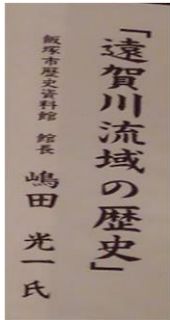 「遠賀川流域の歴史」
飯塚市歴史資料館 館長 嶋田 光一 氏